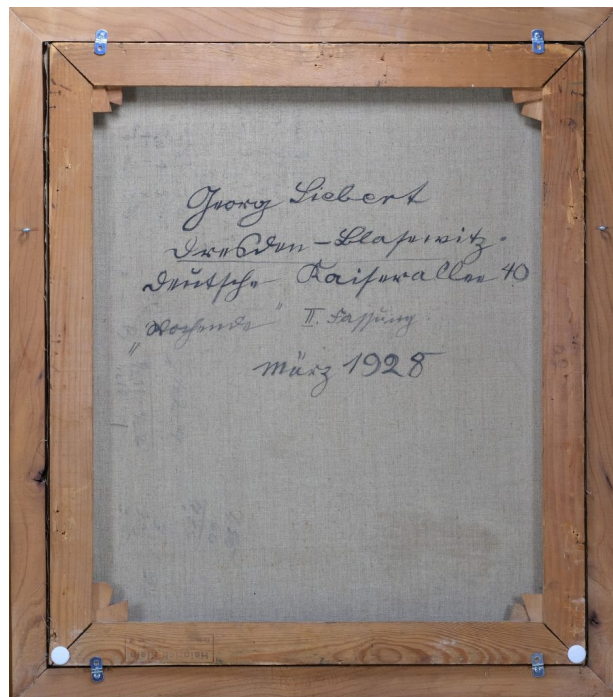 Georg Siebert
Dresden-Blasewitz.
Deutsche Kaiserallee 40
"Wochende" II. Fassung.
März 1928